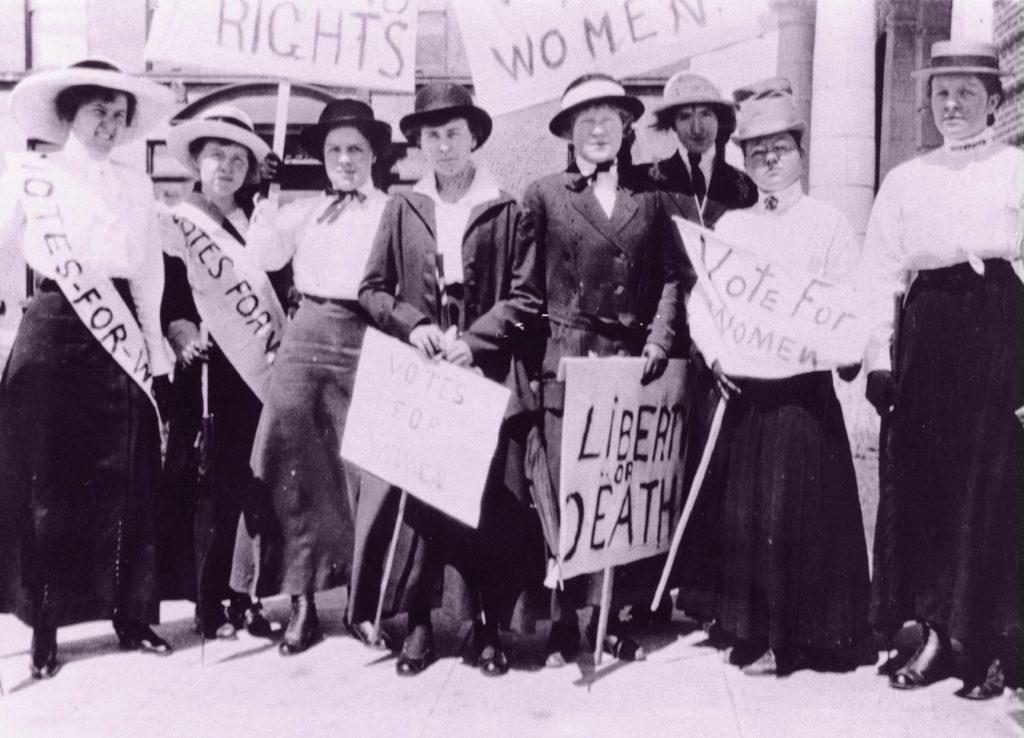 RIGHTS
WOMEN.
VOTES-FOR-W
VOTES FOR W
VOTES
FOR
WOMEN
LIBERTY
OR
DEATH
Vote For
WOMEN